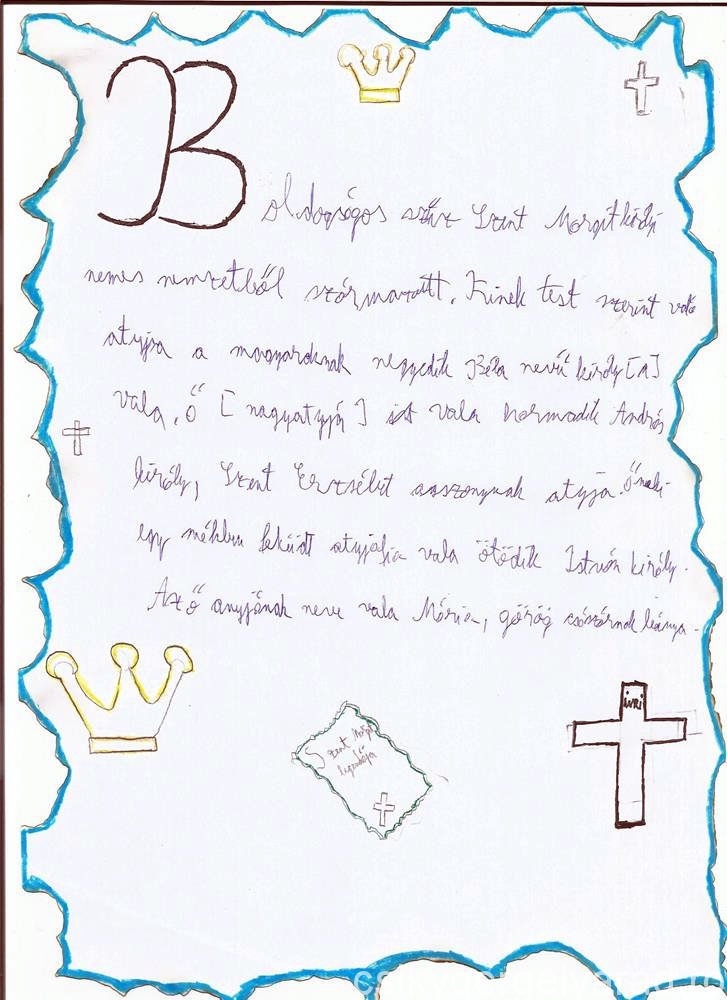 Boldogságos szűz Szent Margit királyi
nemes nemzetből származatt. Kinek test szerint való
atyja a magyaroknak negyedik Béla nevű király[a]
vala, ő [nagyatyja] ist vala harmadik András
király, Szent Erzsébet asszonynak atyja. Őneki
egy méhben feküdt atyjafia vala ötödik István király.
Az ő anyjának neve vala Mária, görög császárnak leánya.
Szent Margit
legendája
INRI